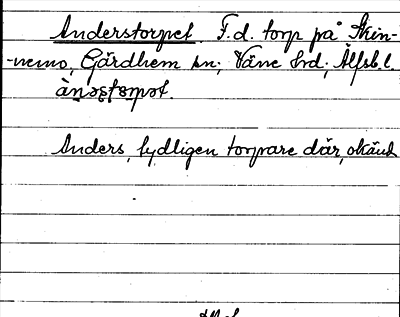 Anderstorpet. F.d. torp på Skin-
-nemo, Gärdhem sn; Väne hrd; Älfsb. l.

Anders, lydligen torpare där, okänd